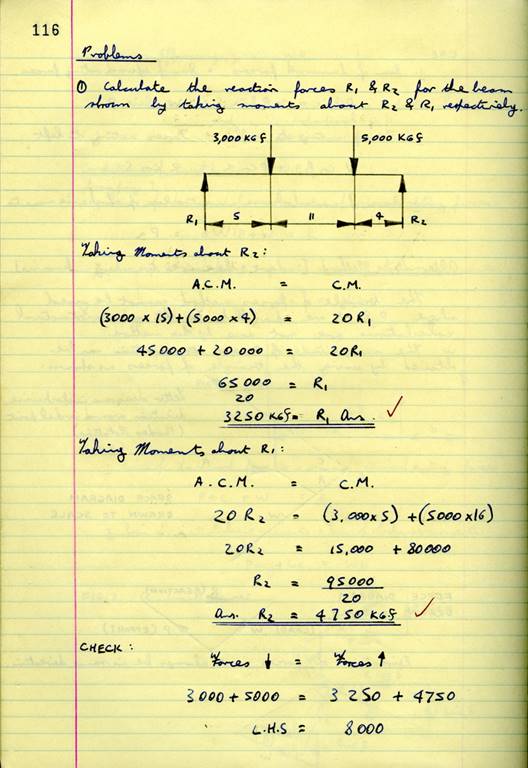 116
Problems
① Calculate the reaction forces R1 & R2 for the beam
shown by taking moments about R2 & R1 respectively.
3,000 KGf 5,000 KGf
R1 5 11 4 R2
Taking Moments about R2:
A.C.M. = C.M.
(3000 x 15) + (5000 x 4) = 20R1
45000 + 20000 = 20R1
65000 = R1
20
3250 KGf = R1 Ans. ✓
Taking Moments about R1:
A.C.M. = C.M.
20 R2 = (3,000 x 5) + (5000 x 16)
20R2 = 15,000 + 80000
R2 = 95000
20
Ans. R2 = 4750 KGf ✓
CHECK:
Forces ↓ = Forces ↑
3000 + 5000 = 3250 + 4750
L.H.S = 8000